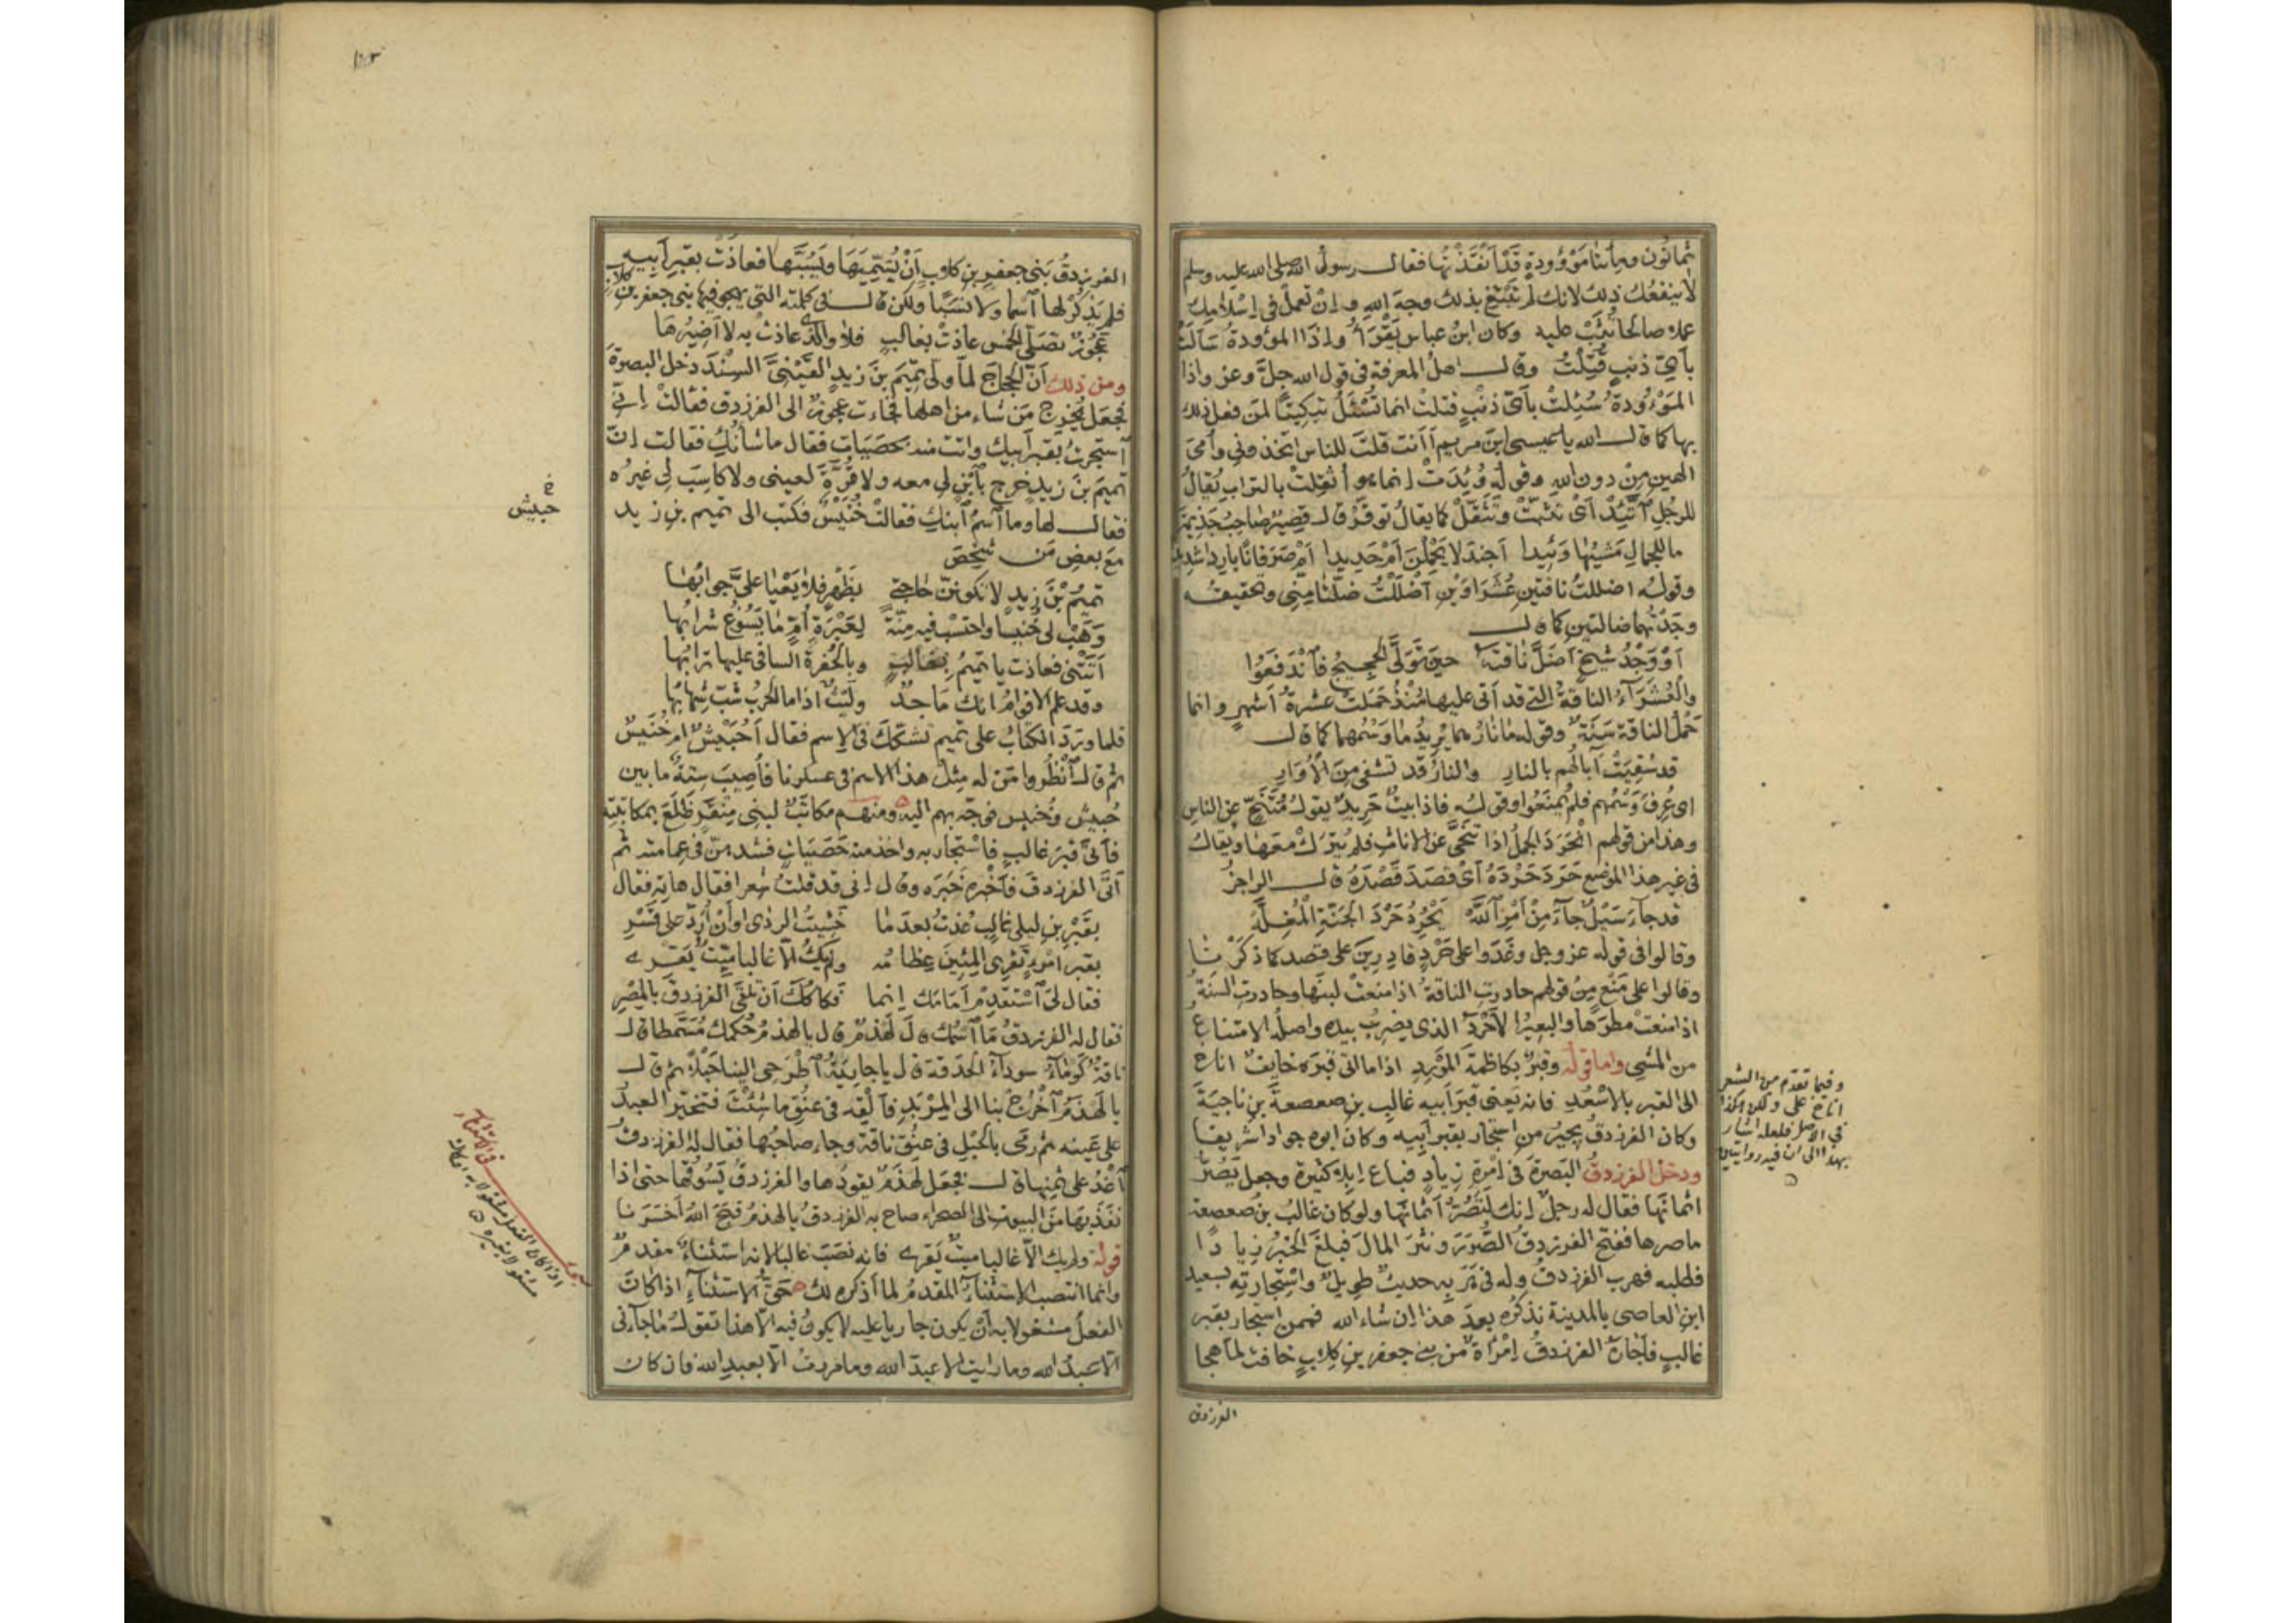 ثمانون ومأتا موؤودة قد أنقذتها فقال رسول الله صلى الله عليه وسلم
لا ينفعك ذلك لانك لم تبتغ بذلك وجه الله وان تعمل في اسلامك
عملا صالحا تثب عليه وكان ابن عباس يقرأ واذا الموؤودة سألت
بأي ذنب قتلت وقال اهل المعرفة في قول الله جل وعز واذا
الموءودة سئلت بأي ذنب قتلت انما تسئل تبكيتا لمن فعل ذلك
بها كما قال الله يا عيسى ابن مريم أأنت قلت للناس اتخذوني وأمي
الهين من دون الله وقوله وئدت انما هو أثقلت بالتراب يقال
للرجل اتئد أي تثبت وتثقل كما يقال توقر قال قصير صاحب جذيمة
ما للجمال مشيها وئيدا أجندلا يحملن أم حديدا أم صرفانا باردا شديدا
وقوله اضللت ناقتين عشراوين أضللت ضلتا مني وتحقيقه
وجدتهما ضالتين كما قال
أو وجد شيخ أضل ناقته حين تولى الحجيج فاندفعوا
والعشراء الناقة التي قد أتى عليها منذ حملت عشرة أشهر وانما
حمل الناقة سنة وقوله ما نارهما يريد ما وسمهما كما قال
قد سقيت آبالهم بالنار والنار قد تشفي من الأوار
اى عرف وسمهم فلم يمنعوا وقوله فاذا بيت حريد يقول متنح عن الناس
وهذا من قولهم انحرد الجمل اذا تنحى عن الاناث فلم يترك معها ويقال
في غير هذا الموضع حرد حرده أي قصد قصده قال الراجز
قد جاء سيل جاء من أمر الله يحرد حرد الجنة المغلة
وقالوا في قوله عز وجل وغدوا على حرد قادرين على قصد كما ذكرنا
وقالوا على منع من قولهم حاردت الناقة اذا منعت لبنها وحاردت السنة
اذا منعت مطرها والبعير الأحرد الذى يضرب بيده واصله الامتناع
من المشي واما قوله وقبر بكاظمة المورد اذا ما اتى قبره خايف اناخ
الى القبر بالاسعد فانه يعنى قبر أبيه غالب بن صعصعة بن ناجية
وكان الفرزدق يجير من استجار بقبر أبيه وكان ابوه جوادا شريفا
ودخل الفرزدق البصرة في امرة زياد فباع ابلا كثيرة وجعل يصر
اثمانها فقال له رجل انك لتصر أثمانها ولو كان غالب بن صعصعة
ما صرها ففتح الفرزدق الصرر ونثر المال فبلغ الخبر زيادا
فطلبه فهرب الفرزدق وله في هربه حديث طويل واستجارته بسعيد
ابن العاصى بالمدينة نذكره بعد هذا ان شاء الله فممن استجار بقبر
غالب فأجاره الفرزدق امرأة من بني جعفر بن كلاب خافت لما هجا
الفرزدق
وفيما تقدم من الشعر
اناخ على ولكن هكذا
في الاصل فلعله اشار
بهذا الى ان فيه روايتين
١٠٣
الفرزدق بني جعفر بن كلاب أن يسميها ويسبها فعاذت بقبر أبيه
فلم يذكر لها اسما ولا نسبا ولكن قال في كلمته التي يهجو فيها بني جعفر بن كلاب
عجوز تصلي الخمس عاذت بغالب فلا والذي عاذت به لا أضيرها
ومن ذلك أن الحجاج لما ولى تميم بن زيد القيني السند دخل البصرة
فجعل يخرج من شاء من اهلها فجاءت عجوز الى الفرزدق فقالت اني
استجرت بقبر أبيك واتت منه بحصيات فقال ما شأنك فقالت ان
تميم بن زيد خرج بابن لي معه ولا قرة لعيني ولا كاسب لي غيره
فقال لها وما اسم ابنك فقالت خنيس فكتب الى تميم بن زيد
مع بعض من شخص
تميم بن زيد لا تكونن حاجتي بظهر فلا يعيا علي جوابها
وهب لى خنيسا واحتسب فيه منة لعبرة أم ما يسوغ شرابها
أتتني فعاذت يا تميم بغالب وبالحفرة السافي عليها ترابها
وقد علم الاقوام انك ماجد وليث اذا ما الحرب شب شهابها
فلما ورد الكتاب على تميم تشكك في الاسم فقال أحبيش ام خنيس
ثم قال انظروا من له مثل هذا الاسم في عسكرنا فأصيب ستة ما بين
حبيش وخنيس فوجه بهم اليه ومنهم مكاتب لبني منقر ظلع بمكاتبته
فأتى قبر غالب فاستجار به واخذ منه حصيات فشدهن في عمامته ثم
أتى الفرزدق فأخبره خبره وقال انى قد قلت شعرا فقال هاته فقال
بقبر بن ليلى غالب عذت بعد ما خشيت الردى أو أن أرد على قسر
بقبر امرء تقرى المئين عظامه ولم يك الا غالبا ميت يقرى
فقال لي استقدم أمامك انما فكاكك أن تلقى الفرزدق بالمصر
فقال له الفرزدق ما اسمك قال لهذم قال يا لهذم حكمك مسمطا قال
ناقة كوماء سوداء الحدقة قال يا جارية اطرحي الينا حبلا ثم قال
يا لهذم اخرج بنا الى المربد فألقه في عنق ما شئت فتخير العبد
على عينه ثم رمى بالحبل في عنق ناقة وجاء صاحبها فقال له الفرزدق
أغد علي في ثمنها قال فجعل لهذم يقودها والفرزدق يسوقها حتى اذا
نفذ بها من البيوت الى الصحراء صاح به الفرزدق يا لهذم قبح الله أخسرنا
قوله ولم يك الا غالبا ميت يقرى فانه نصب غالبا لانه استثناء مقدم
وانما انتصب الاستثناء المقدم لما أذكره لك حق الاستثناء اذا كان
الفعل مشغولا به أن يكون جاريا عليه لا يكون فيه الا هذا تقول ما جاءنى
الا عبد الله وما رايت الا عبد الله وما مررت الا بعبد الله فان كان
خ
حبيش
اذا كان الفعل مشغولا به او كان
مشغولا بغيره